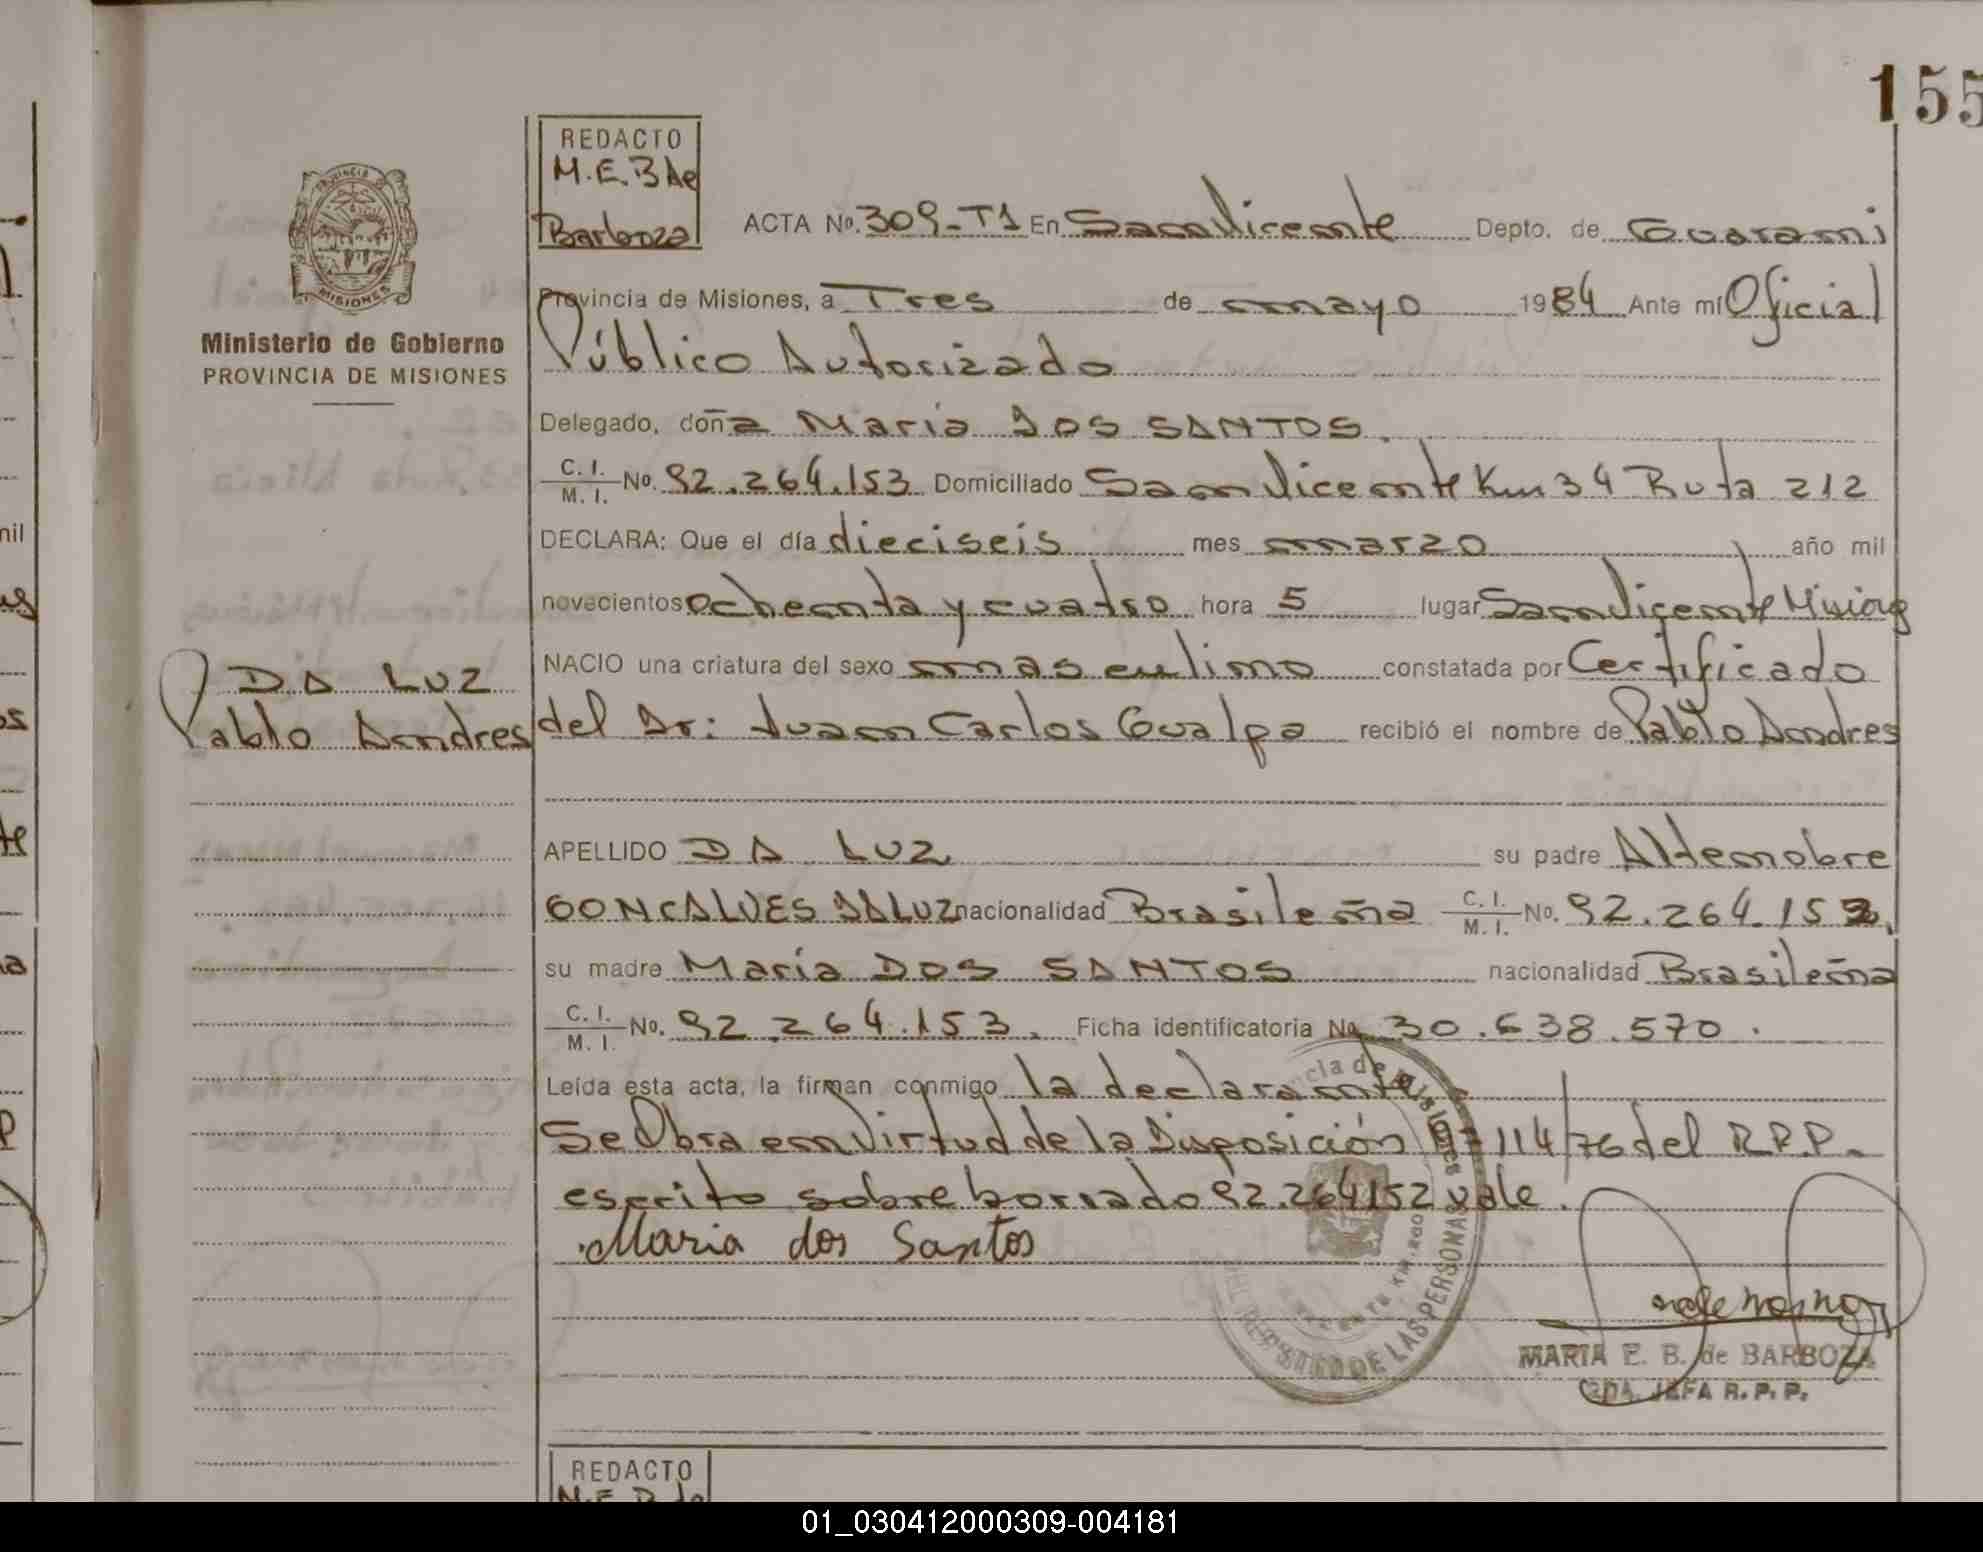 155
REDACTO
M.E.B de
Barboza
ACTA No. 309-T1 En San Vicente Depto. de Guarani
PROVINCIA DE
MISIONES
Provincia de Misiones, a Tres de mayo 1984 Ante mí Oficial
Ministerio de Gobierno
PROVINCIA DE MISIONES
Público Autorizado
Delegado, doña Maria DOS SANTOS.
C. I. / M. I. No. 92.264.153 Domiciliado San Vicente Km 34 Ruta 212
DECLARA: Que el día dieciseis mes marzo año mil
novecientos ochenta y cuatro hora 5 lugar San Vicente Misiones
NACIO una criatura del sexo masculino constatada por Certificado
DA LUZ
Pablo Andres
del Dr: Juan Carlos Gualpa recibió el nombre de Pablo Andres
APELLIDO DA LUZ su padre Altenobre
GONCALVES DA LUZ nacionalidad Brasileña C. I. / M. I. No. 92.264.152,
su madre Maria DOS SANTOS nacionalidad Brasileña
C. I. / M. I. No. 92.264.153. Ficha identificatoria No 30.638.570.
Leída esta acta, la firman conmigo la declarante
Se Obra en Virtud de la Disposición Nº 114/76 del R.P.P.
escrito sobre borrado 92.264152 vale.
Maria dos Santos
MARIA E. B. de BARBOZA
2DA. JEFA R. P. P.
REGISTRO DE LAS PERSONAS
REDACTO
M.E.B de
01_030412000309-004181